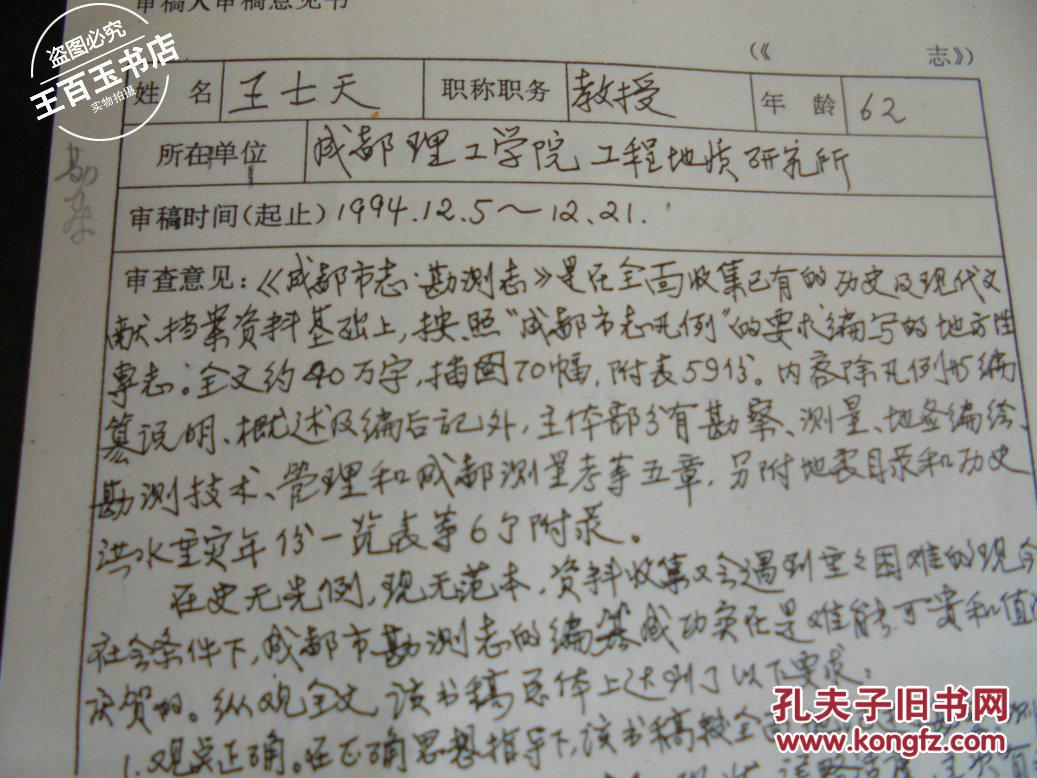 审稿人审稿意见书
(《 志》)
姓 名 王士天 职称职务 教授 年 龄 62
所在单位 成都理工学院工程地质研究所
审稿时间(起止) 1994.12.5～12.21.
审查意见:《成都市志·勘测志》是在全面收集已有的历史及现代文
献、档案资料基础上,按照“成都市志凡例”的要求编写的地方性
专志。全文约40万字,插图70幅,附表59份。内容除凡例形编
篡说明、概述及编后记外,主体部分有勘察、测量、地图编绘、
勘测技术、管理和成都测量考等五章,另附地表目录和历史
洪水重灾年份一览表等6个附录。
在史无先例,现无范本,资料收集又会遇到重重困难的现今
社会条件下,成都市勘测志的编篡成功实在是难能可贵和值
庆贺的。纵观全文,该书稿总体上达到了以下要求:
1.观点正确。在正确思想指导下,该书稿较全面
勘察
盗图必究
王百玉书店
实物拍摄
孔夫子旧书网
www.kongfz.com